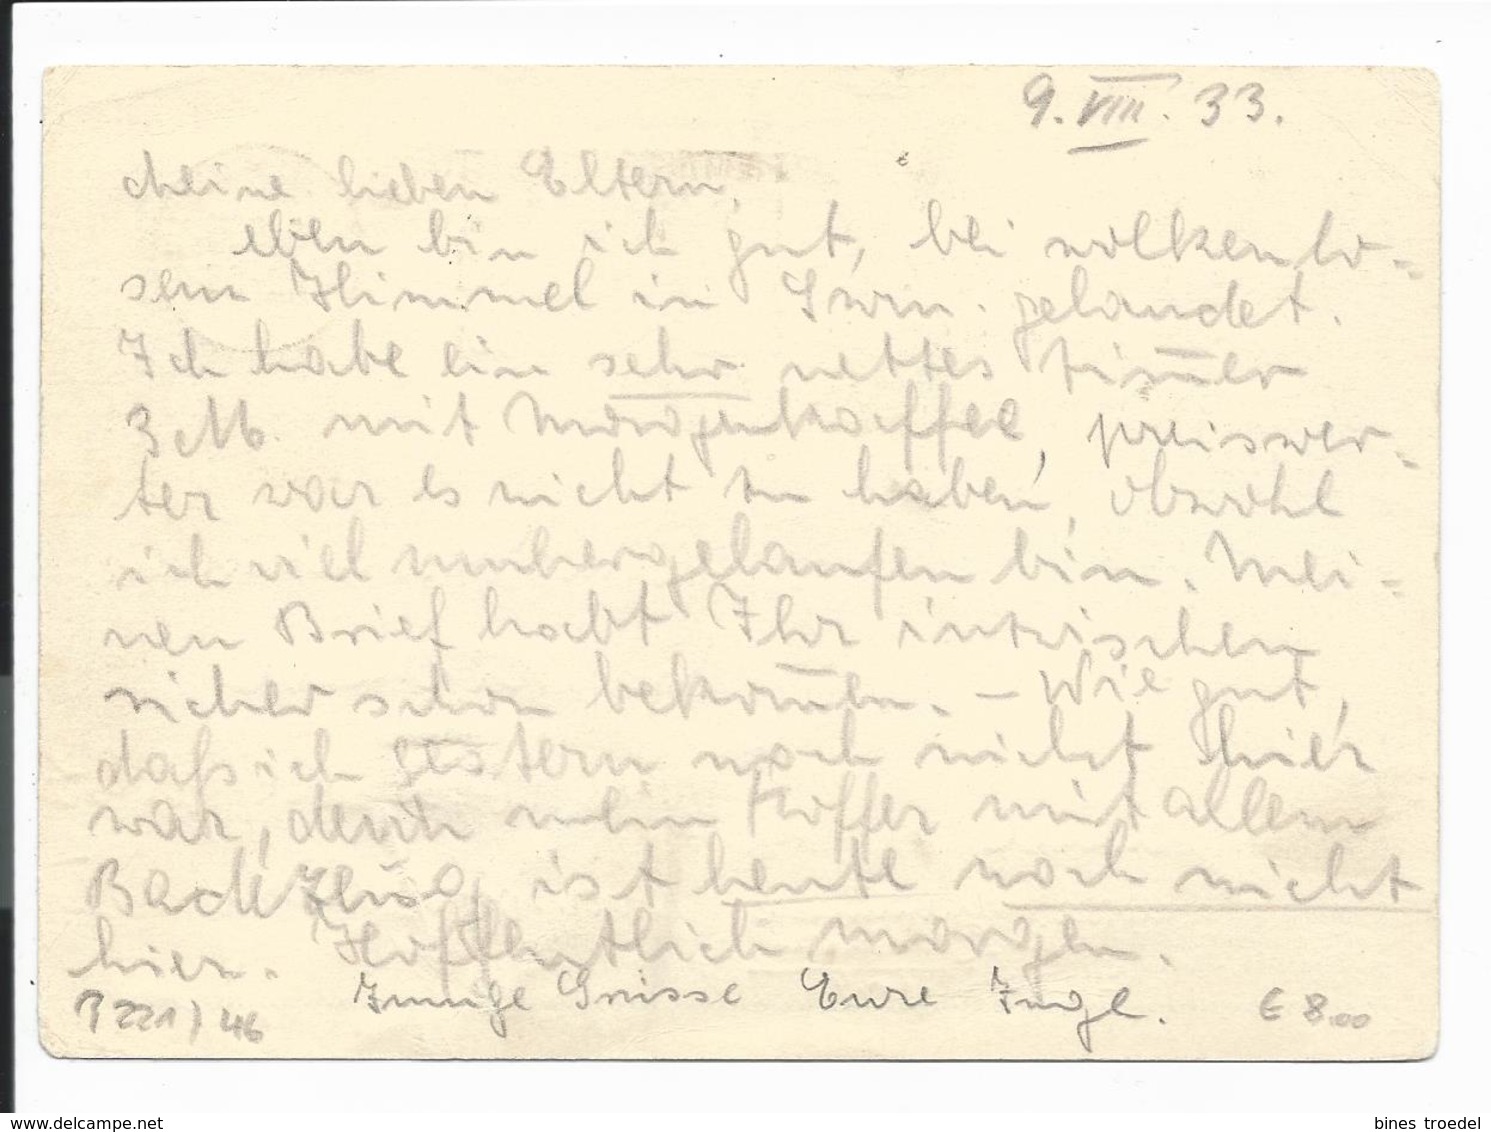 9. VIII. 33.
Meine lieben Eltern,
eben bin ich gut, bei wolkenlo-
sem Himmel in gelandet.
Ich habe ein sehr nettes Zim̄er
3 M. mit Morgenkaffee, preiswer-
ter war es nicht zu haben, obwohl
ich viel umhergelaufen bin. Mei-
nen Brief habt Ihr inzwischen
sicher schon bekom̄en. – Wie gut,
daß ich gestern noch nicht hier
war, denn mein Koffer mit allem
Badezeug ist heute noch nicht
hier. Hoffentlich morgen.
Innige Grüsse Eure Inge.
P 221) 46
€ 8.00
www.delcampe.net
bines troedel